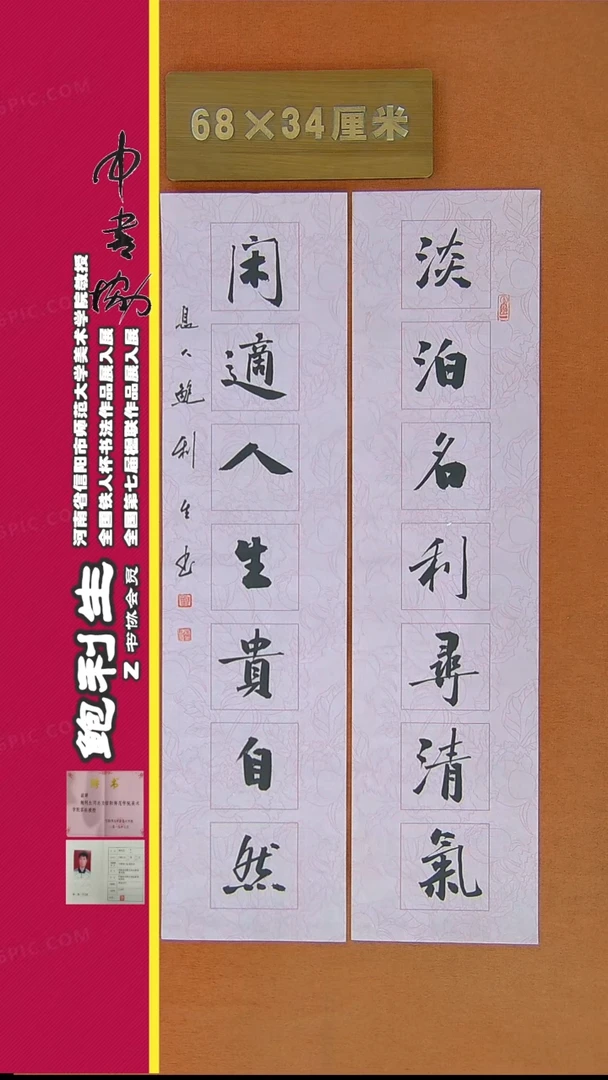 68×34厘米
淡泊名利尋清氣
闲適人生貴自然
息人鲍利生书
中书协
河南省信阳市师范大学美术学院教授
全国铁人杯书法作品展入展
全国第七届楹联作品展入展
鲍利生
Z书协会员